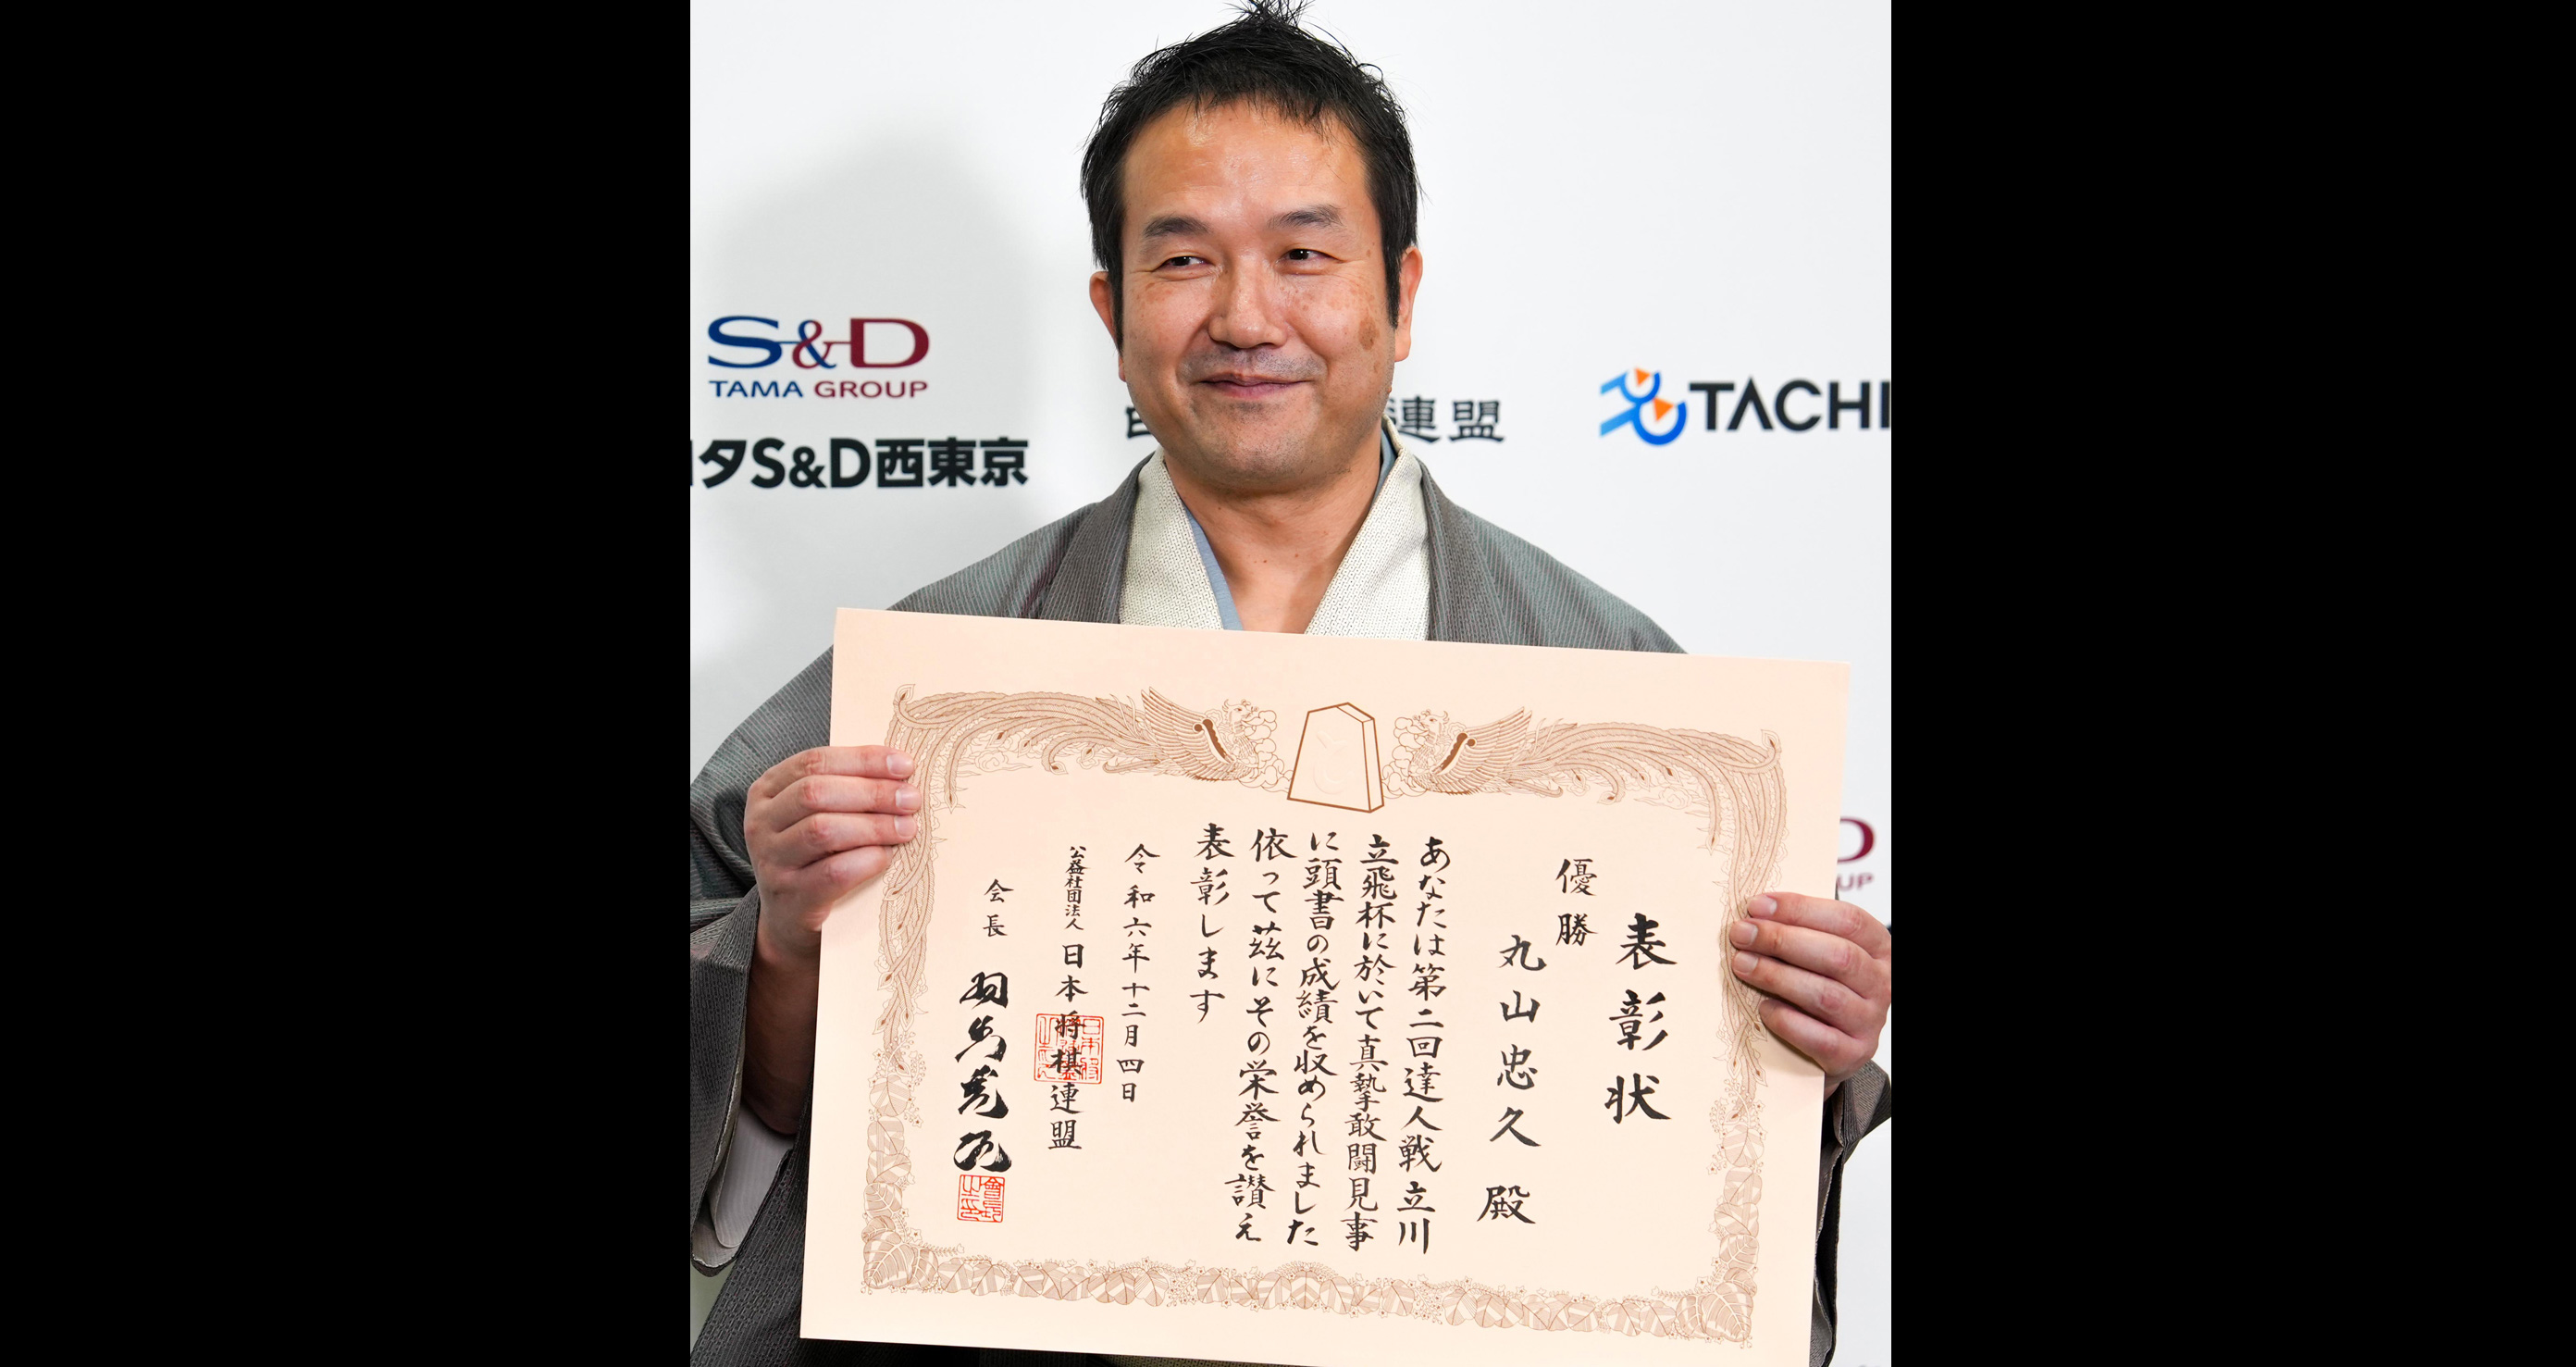 S&D
TAMA GROUP
タS&D西東京
連盟
TACHI
表彰状
優勝
丸山忠久殿
あなたは第二回達人戦立川
立飛杯に於いて真摯敢闘見事
に頭書の成績を収められました
依って茲にその栄誉を讃え
表彰します
令和六年十二月四日
公益社団法人日本将棋連盟
会長 羽生善治